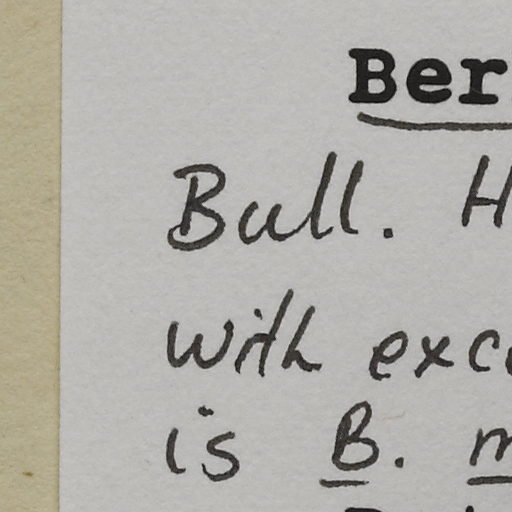 Ber
Bull. H
with exce
is B. m